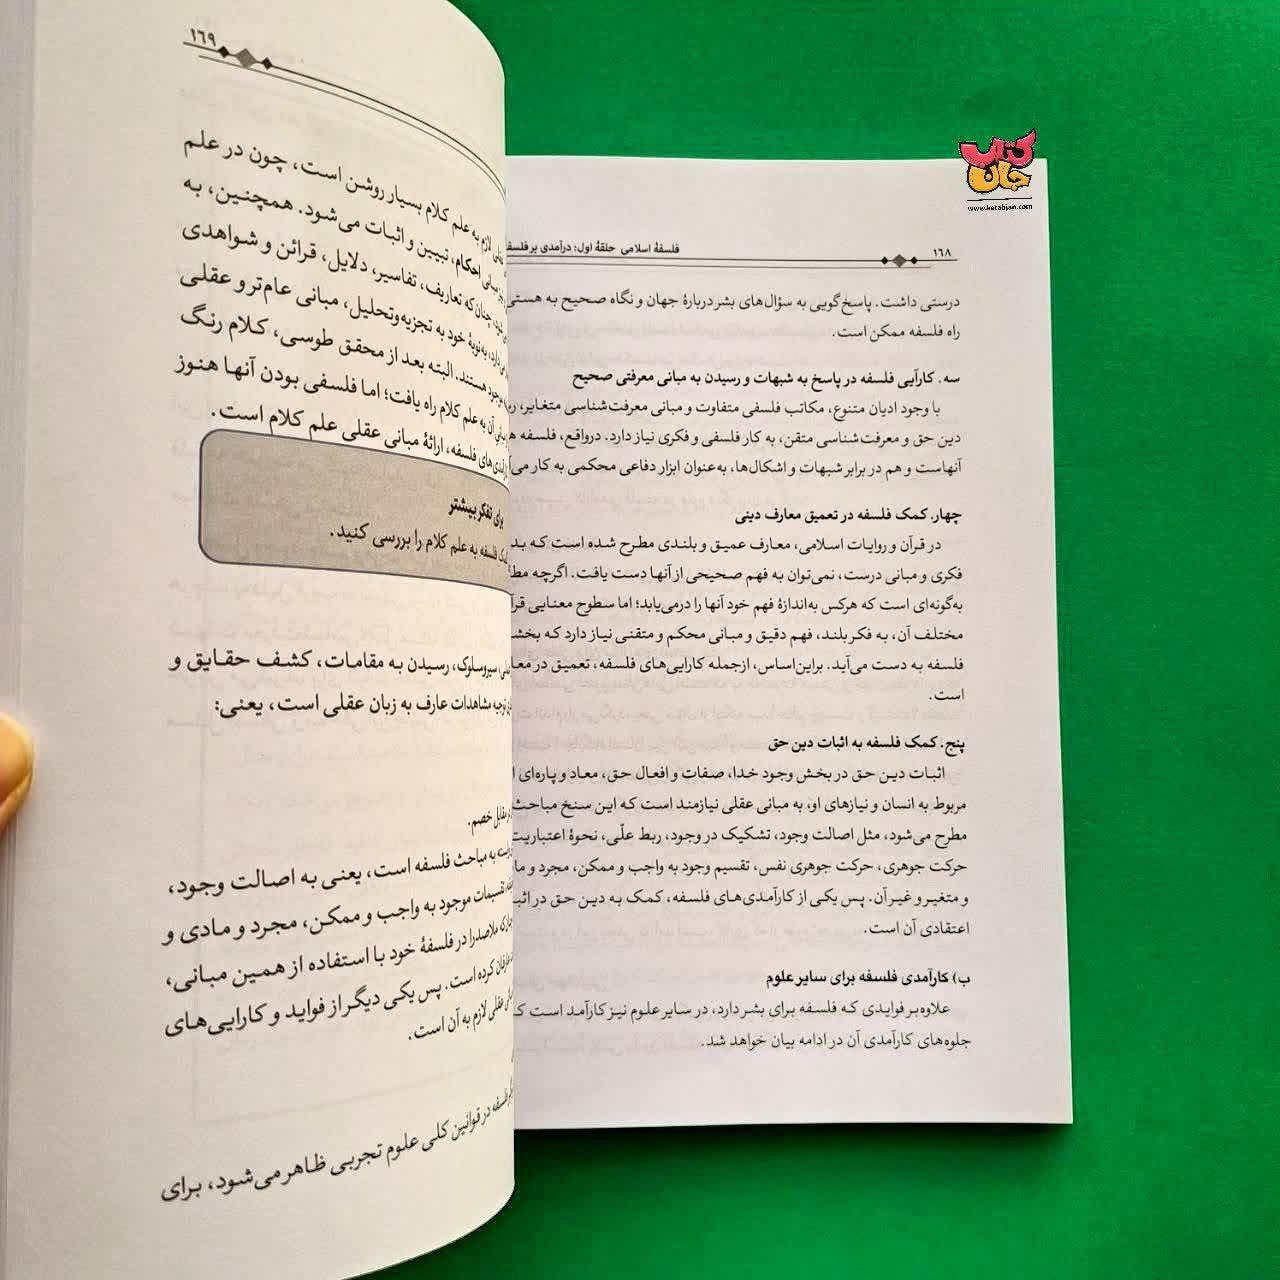 کتاب
جان
www.ketabjan.com
۱۶۸
فلسفهٔ اسلامی حلقهٔ اول: درآمدی بر فلسفه
درستی داشت. پاسخ‌گویی به سؤال‌های بشر دربارهٔ جهان و نگاه صحیح به هستی
راه فلسفه ممکن است.
سه. کارآیی فلسفه در پاسخ به شبهات و رسیدن به مبانی معرفتی صحیح
با وجود ادیان متنوع، مکاتب فلسفی متفاوت و مبانی معرفت‌شناسی متغایر،
دین حق و معرفت‌شناسی متقن، به کار فلسفی و فکری نیاز دارد. درواقع، فلسفه
آنهاست و هم در برابر شبهات و اشکال‌ها، به‌عنوان ابزار دفاعی محکمی به کار
چهار. کمک فلسفه در تعمیق معارف دینی
در قرآن و روایات اسلامی، معارف عمیق و بلندی مطرح شده است که
فکری و مبانی درست، نمی‌توان به فهم صحیحی از آنها دست یافت. اگرچه
به‌گونه‌ای است که هرکس به‌اندازهٔ فهم خود آنها را درمی‌یابد؛ اما سطوح معنایی
مختلف آن، به فکر بلند، فهم دقیق و مبانی محکم و متقنی نیاز دارد که
فلسفه به دست می‌آید. براین‌اساس، ازجمله کارایی‌های فلسفه، تعمیق در
است.
پنج. کمک فلسفه به اثبات دین حق
اثبات دین حق در بخش وجود خدا، صفات و افعال حق، معاد و پاره‌ای
مربوط به انسان و نیازهای او، به مبانی عقلی نیازمند است که این سنخ مباحث
مطرح می‌شود، مثل اصالت وجود، تشکیک در وجود، ربط علّی، نحوهٔ اعتباریت
حرکت جوهری، حرکت جوهری نفس، تقسیم وجود به واجب و ممکن، مجرد و
و متغیر و غیر آن. پس یکی از کارآمدی‌های فلسفه، کمک به دین حق در
اعتقادی آن است.
ب) کارآمدی فلسفه برای سایر علوم
علاوه‌بر فوایدی که فلسفه برای بشر دارد، در سایر علوم نیز کارآمد است
جلوه‌های کارآمدی آن در ادامه بیان خواهد شد.
۱۶۹
لازم به علم کلام بسیار روشن است، چون در علم
مبانی احکام، تبیین و اثبات می‌شود. همچنین، به
چنان‌که تعاریف، تفاسیر، دلایل، قرائن و شواهدی
به‌نوبهٔ خود به تجزیه‌وتحلیل، مبانی عام‌تر و عقلی
موجود هستند. البته بعد از محقق طوسی، کلام رنگ
آن به علم کلام راه یافت؛ اما فلسفی بودن آنها هنوز
فلسفه، ارائهٔ مبانی عقلی علم کلام است.
برای تفکر بیشتر
کمک فلسفه به علم کلام را بررسی کنید.
سیروسلوک، رسیدن به مقامات، کشف حقایق و
توجیه مشاهدات عارف به زبان عقلی است، یعنی:
مقابل خصم.
به مباحث فلسفه است، یعنی به اصالت وجود،
تقسیمات موجود به واجب و ممکن، مجرد و مادی و
ملاصدرا در فلسفهٔ خود با استفاده از همین مبانی،
کرده است. پس یکی دیگر از فواید و کارایی‌های
عقلی لازم به آن است.
فلسفه در قوانین کلی علوم تجربی ظاهر می‌شود، برای